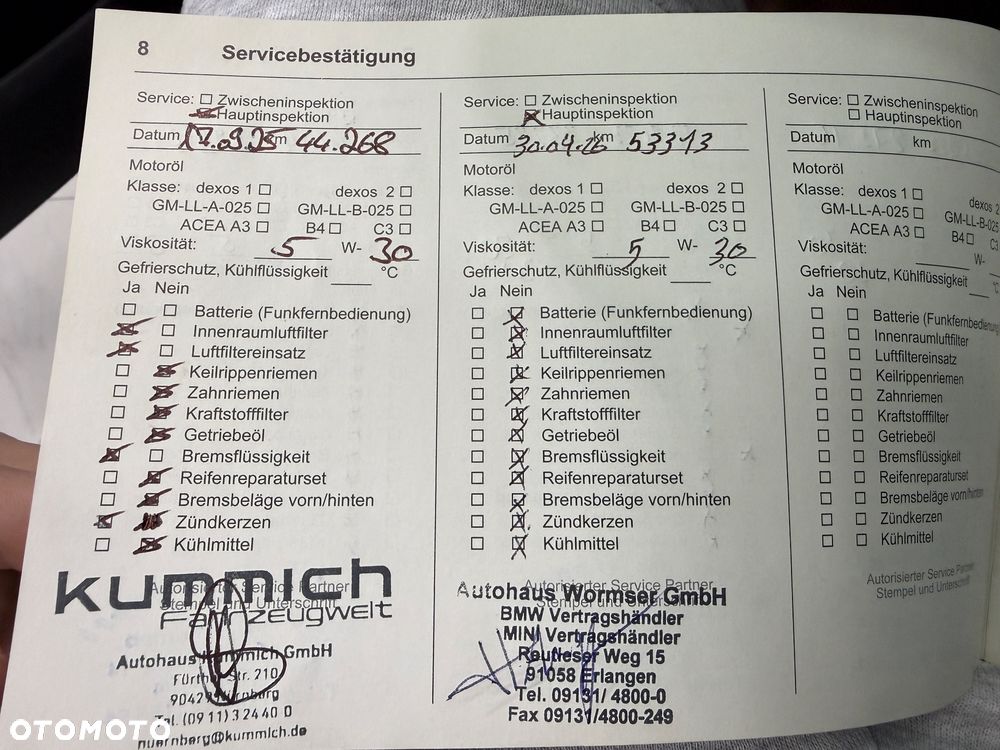 8 Servicebestätigung
Service: Zwischeninspektion
Hauptinspektion
Datum 17.09.25 km 44.268
Motoröl
Klasse: dexos 1 dexos 2
GM-LL-A-025 GM-LL-B-025
ACEA A3 B4 C3
Viskosität: 5 W- 30
Gefrierschutz, Kühlflüssigkeit °C
Ja Nein
Batterie (Funkfernbedienung)
Innenraumluftfilter
Luftfiltereinsatz
Keilrippenriemen
Zahnriemen
Kraftstofffilter
Getriebeöl
Bremsflüssigkeit
Reifenreparaturset
Bremsbeläge vorn/hinten
Zündkerzen
Kühlmittel
Autorisierter Service Partner
Stempel und Unterschrift
kummich
Fahrzeugwelt
Autohaus Kummich GmbH
Fürther Str. 210
90429 Nürnberg
Tel. (0911) 3 24 40 0
nuernberg@kummich.de
Service: Zwischeninspektion
Hauptinspektion
Datum 30.04.26 km 53313
Motoröl
Klasse: dexos 1 dexos 2
GM-LL-A-025 GM-LL-B-025
ACEA A3 B4 C3
Viskosität: 5 W- 30
Gefrierschutz, Kühlflüssigkeit °C
Ja Nein
Batterie (Funkfernbedienung)
Innenraumluftfilter
Luftfiltereinsatz
Keilrippenriemen
Zahnriemen
Kraftstofffilter
Getriebeöl
Bremsflüssigkeit
Reifenreparaturset
Bremsbeläge vorn/hinten
Zündkerzen
Kühlmittel
Autorisierter Service Partner
Stempel und Unterschrift
Autohaus Wormser GmbH
BMW Vertragshändler
MINI Vertragshändler
Reutleser Weg 15
91058 Erlangen
Tel. 09131/ 4800-0
Fax 09131/4800-249
Service: Zwischeninspektion
Hauptinspektion
Datum km
Motoröl
Klasse: dexos 1 dexos 2
GM-LL-A-025 GM-LL-B-025
ACEA A3 B4 C3
Viskosität: W-
Gefrierschutz, Kühlflüssigkeit °C
Ja Nein
Batterie (Funkfernbedienung
Innenraumluftfilter
Luftfiltereinsatz
Keilrippenriemen
Zahnriemen
Kraftstofffilter
Getriebeöl
Bremsflüssigkeit
Reifenreparaturset
Bremsbeläge vorn/hinten
Zündkerzen
Kühlmittel
Autorisierter Service Partner
Stempel und Unterschrift
OTOMOTO